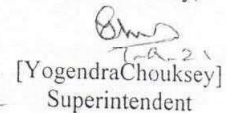 [YogendraChouksey]
Superintendent